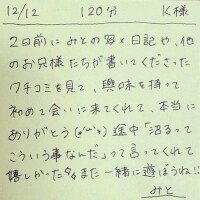 12/12 120分 K様
2日前にみとの写メ日記や、他
のお兄様たちが書いてくださった
クチコミを見て、興味を持って
初めて会いに来てくれて、本当に
ありがとう(◦'ω'◦)途中「沼るって
こういう事なんだ」って言ってくれて
嬉しかったまた一緒に遊ぼうね!!
みと